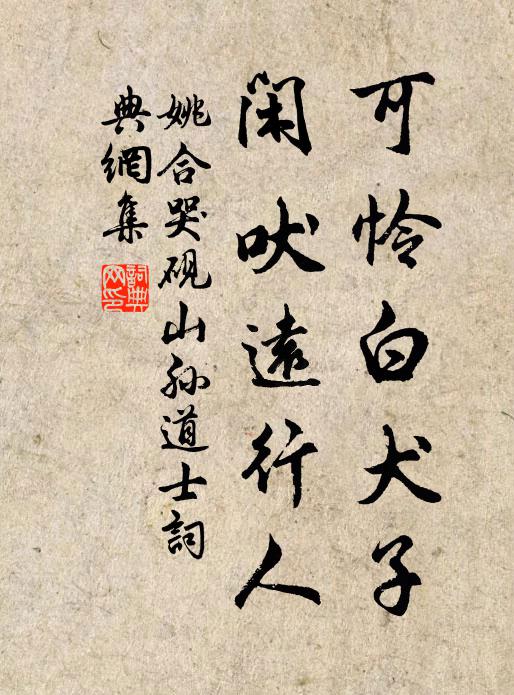 可怜白犬子
闲吠遠行人
姚合哭砚山孙道士詞
典網集
詞典網印